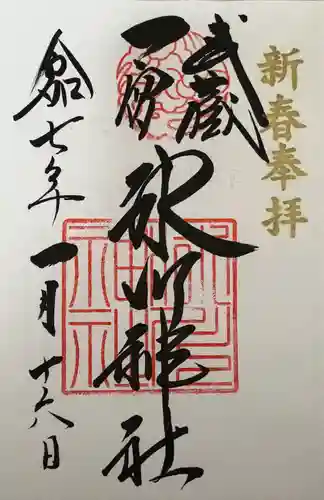 新春奉拝
武蔵
一宮
氷川神社
令七年
一月十六日